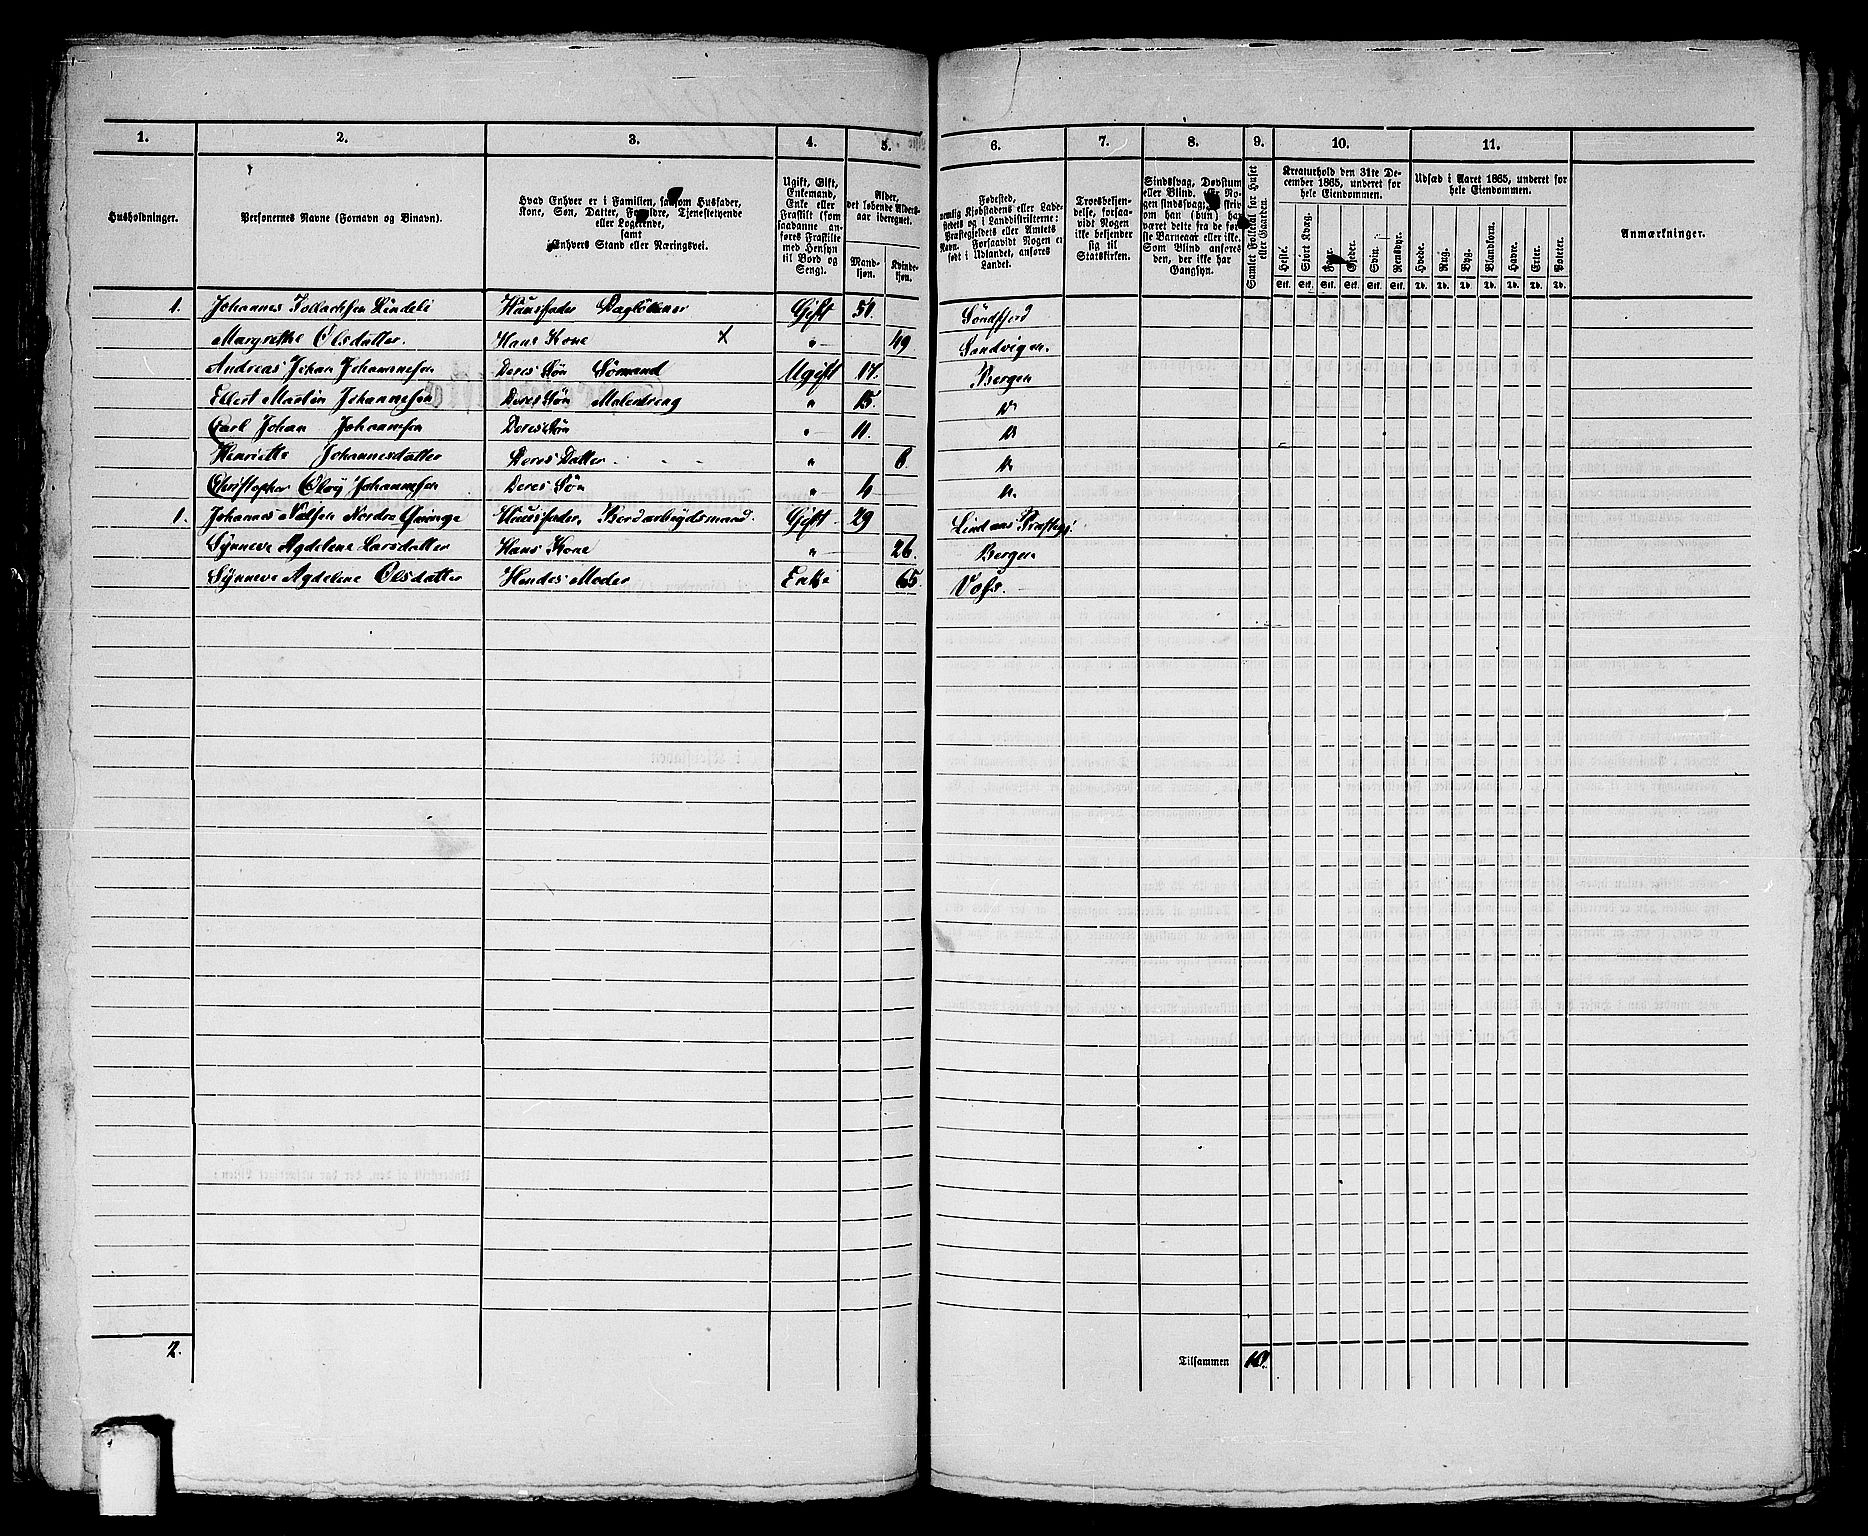 1. 2. 3. 4. 5. 6. 7. 8. 9. 10. 11.
Husholdninger.
Personernes Navne (Fornavn og Binavn).
Hvad Enhver er i Familien, saasom Husfader,
Kone, Søn, Datter, Forældre, Tjenestetyende
eller Logerende,
samt
Enhvers Stand eller Næringsvei.
Ugift, Gift,
Enkemand,
Enke eller
Fraskilt (som
saadanne an-
føres Fraskilte
med Hensyn
til Bord og
Seng).
Alder,
det løbende Alders-
aar iberegnet.
Mand-
kjøn.
Kvinde-
kjøn.
Fødested,
nemlig Kjøbstadens eller Lade-
stedets og i Landdistrikterne:
Præstegjeldets eller Amtets
Navn. Forsaavidt Nogen er
født i Udlandet, anføres
Landet.
Troesbekjen-
delse, forsaa-
vidt Nogen
ikke bekjender
sig til
Statskirken.
Sindssvag, Døvstum
eller Blind. Er No-
gen sindssvag, skriv
om han (hun) har
været dette fra de før-
ste Barneaar eller ikke.
Som Blind anføres
den, der ikke har
Gangsyn.
Samlet Folketal for Huset
eller Gaarden.
Kreaturhold den 31te De-
cember 1865, underet for
hele Eiendommen.
Heste. Stort Kvæg. Faar. Gjeder. Svin. Rensdyr.
Stk. Stk. Stk. Stk. Stk. Stk.
Udsæd i Aaret 1865, underet for
hele Eiendommen.
Hvede. Rug. Byg. Blandkorn. Havre. Erter. Poteter.
Td. Td. Td. Td. Td. Td. Td.
Anmærkninger.
1. Johannes Lindeli Huusfader Dagløbener Gift 51. Søndfjord
Margrethe Olsdatter. Hans Kone × " 49 Sandvigen.
Andreas Johan Johannesen Deres Søn Sømand Ugift 17. Bergen
Ellert Martin Johannesen Deres Søn Malerdreng " 15. "
Carl Johan Johannesen Deres Søn " 11. "
Henriette Johannesdatter Deres Datter " 8. "
Christopher Johannesen Deres Søn " 4 "
1. Johannes Nilsen Nordre Huusfader, Bordarbeydsmand. Gift 29 Lindaas Præstegj
Synneve Agdelene Larsdatter Hans Kone " 26. Bergen
Synneve Agdelene Olsdatter Hendes Moder Enke 65. Voss.
2. Tilsammen 10.